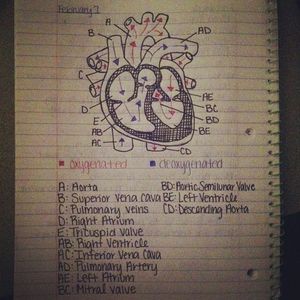 February 7
A
B
AD
C
D
E
AB
AC
AE
BC
BD
BE
CD
oxygenated
deoxygenated
A: Aorta
B: Superior Vena Cava
C: Pulmonary veins
D: Right Atrium
E: Tricuspid Valve
AB: Right Ventricle
AC: Inferior Vena Cava
AD: Pulmonary Artery
AE: Left Atrium
BC: Mitral valve
BD: Aortic Semilunar Valve
BE: Left Ventricle
CD: Descending Aorta